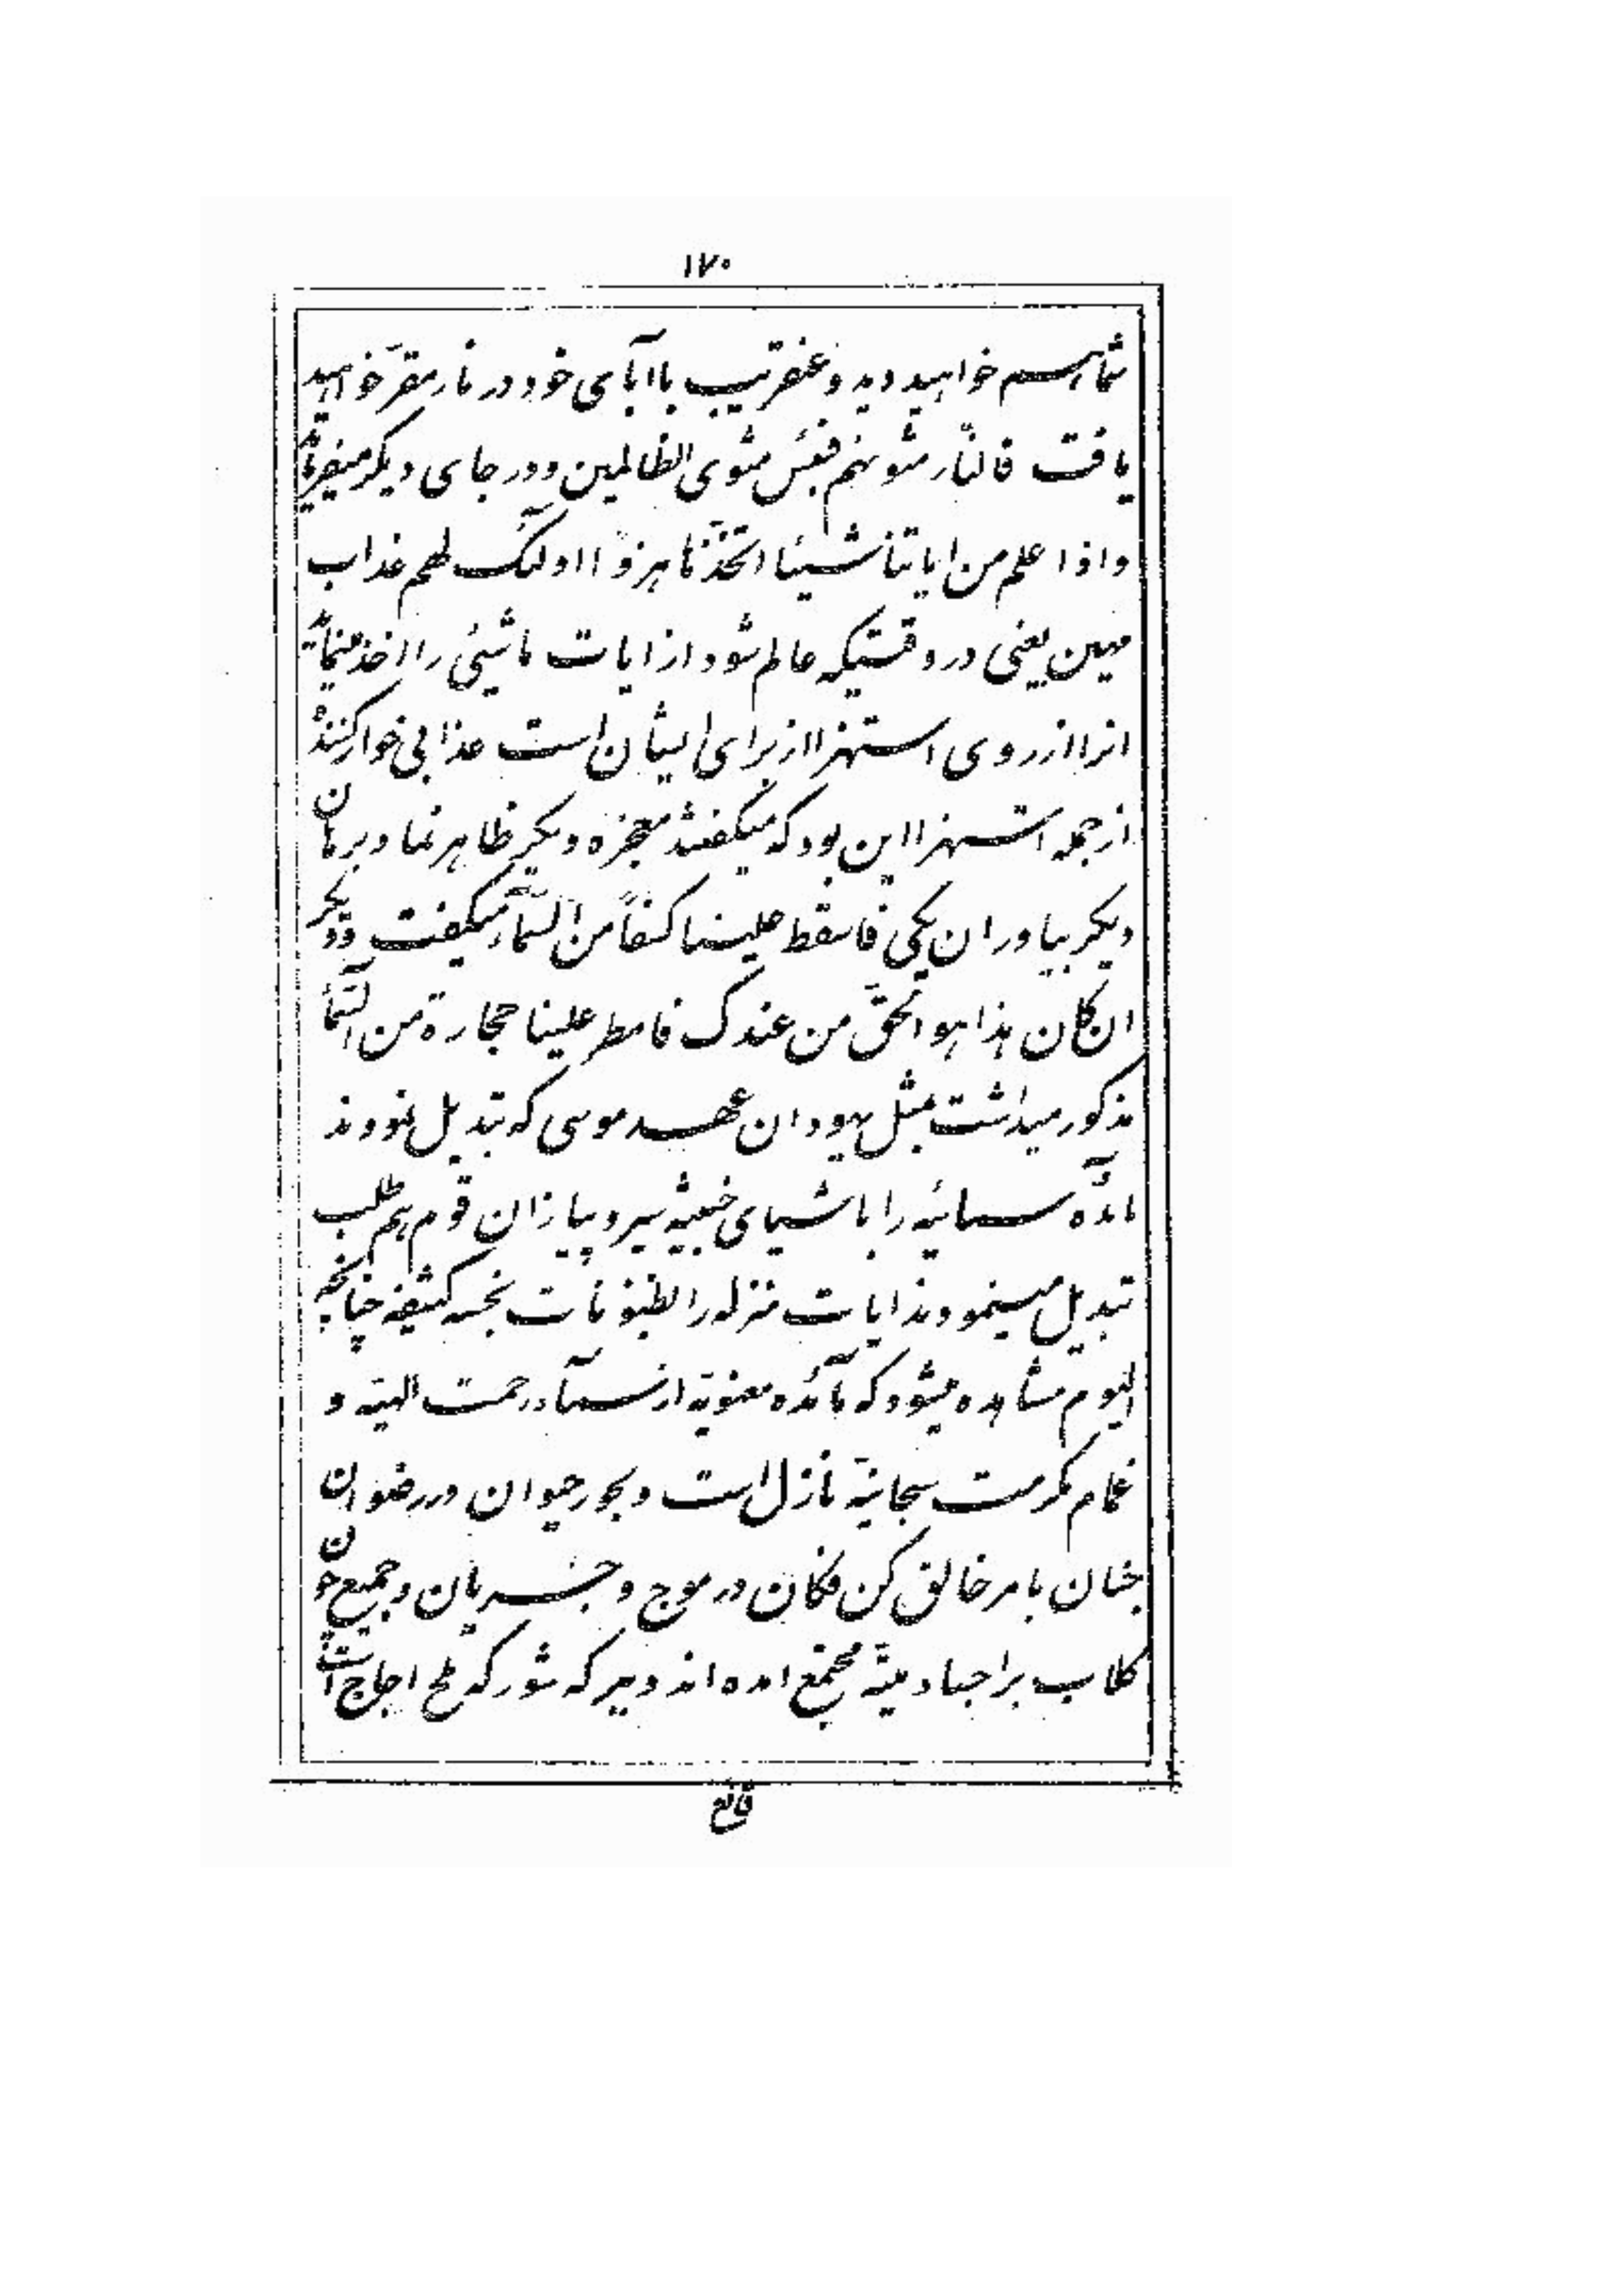 ١٧٠
شما هم خواهید دید و عنقریب با ابآی خود در نار مقرّ خواهید
یافت فالنّار مثوىهم فبئس مثوی الظالمین و در جای دیگر میفرماید
و اذا علم من ایاتنا شیئا اتّخذها هزوًا اولئک لهم عذاب
مهین یعنی در وقتیکه عالم شود از ایات ما شیئی را اخذ مینماید
انرا از روی استهزا از برای ایشان است عذابی خوار کننده
از جمله استهزا این بود که میگفتند معجزه دیگر ظاهر نما و برهان
دیگر بیاور ان یکی فاسقط علینا کسفاً من السّمآء میگفت و دیگر
ان کان هذا هو الحقّ من عندک فامطر علینا حجارة من السّمآء
مذکور میداشت بمثل یهودان عهد موسی که تبدیل نمودند
مائدّه سمائیه را باشیای خبیثه سیر و پیاز ان قوم هم طلب
تبدیل مینمودند ایات منزله را بظنونات نجسه کثیفه چنانچه
الیوم مشاهده میشود که مآئده معنویّه از سمآء رحمت الهیّه و
غمام مکرمت سبحانیّه نازل است و بحور حیوان در رضوان
جنان بامر خالق کن فکان در موج و جریان و جمیع چون
کلاب بر اجساد میتّه مجتمع امده‌اند و ببرکه شور که ملح اجاج است
قانع